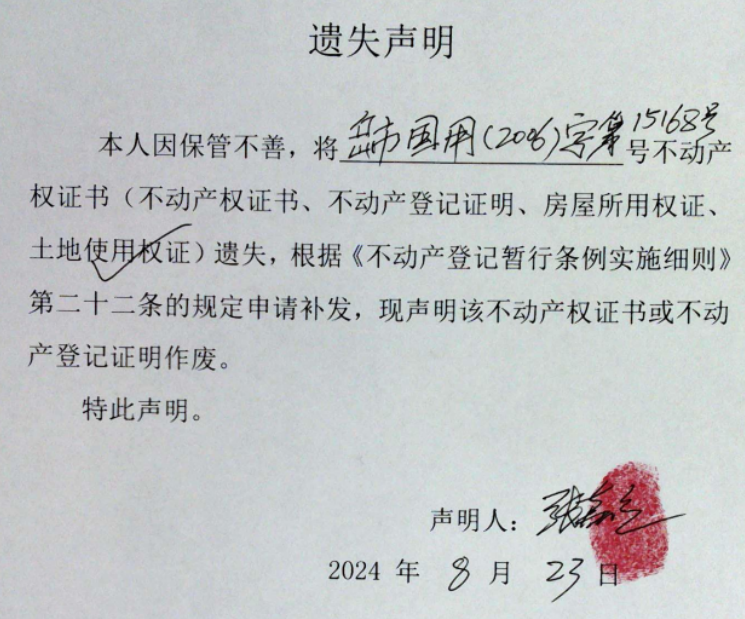 遗失声明
本人因保管不善，将岳市国用(2006)字第15168号号不动产
权证书（不动产权证书、不动产登记证明、房屋所用权证、
土地使用权证）遗失，根据《不动产登记暂行条例实施细则》
第二十二条的规定申请补发，现声明该不动产权证书或不动
产登记证明作废。
特此声明。
声明人：张
2024 年 8 月 23 日